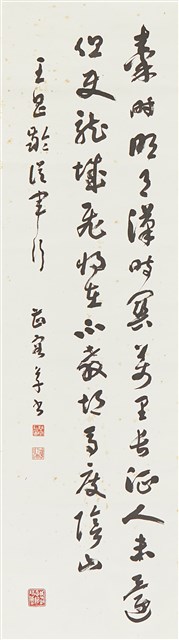 秦時明月漢時關萬里長征人未還
但使龍城飛將在不教胡馬度陰山
王昌齡從軍行